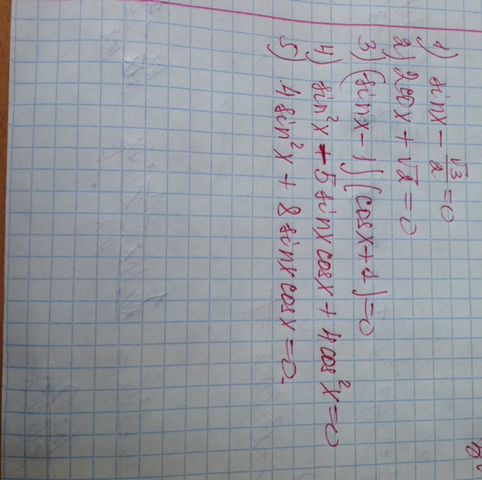 1) sinx - √3/2 = 0
2) 2cosx + √2 = 0
3) (sinx - 1)(cosx + 1) = 0
4) sin²x - 5sinxcosx + 4cos²x = 0
5) 4sin²x + 8sinxcosx = 0.